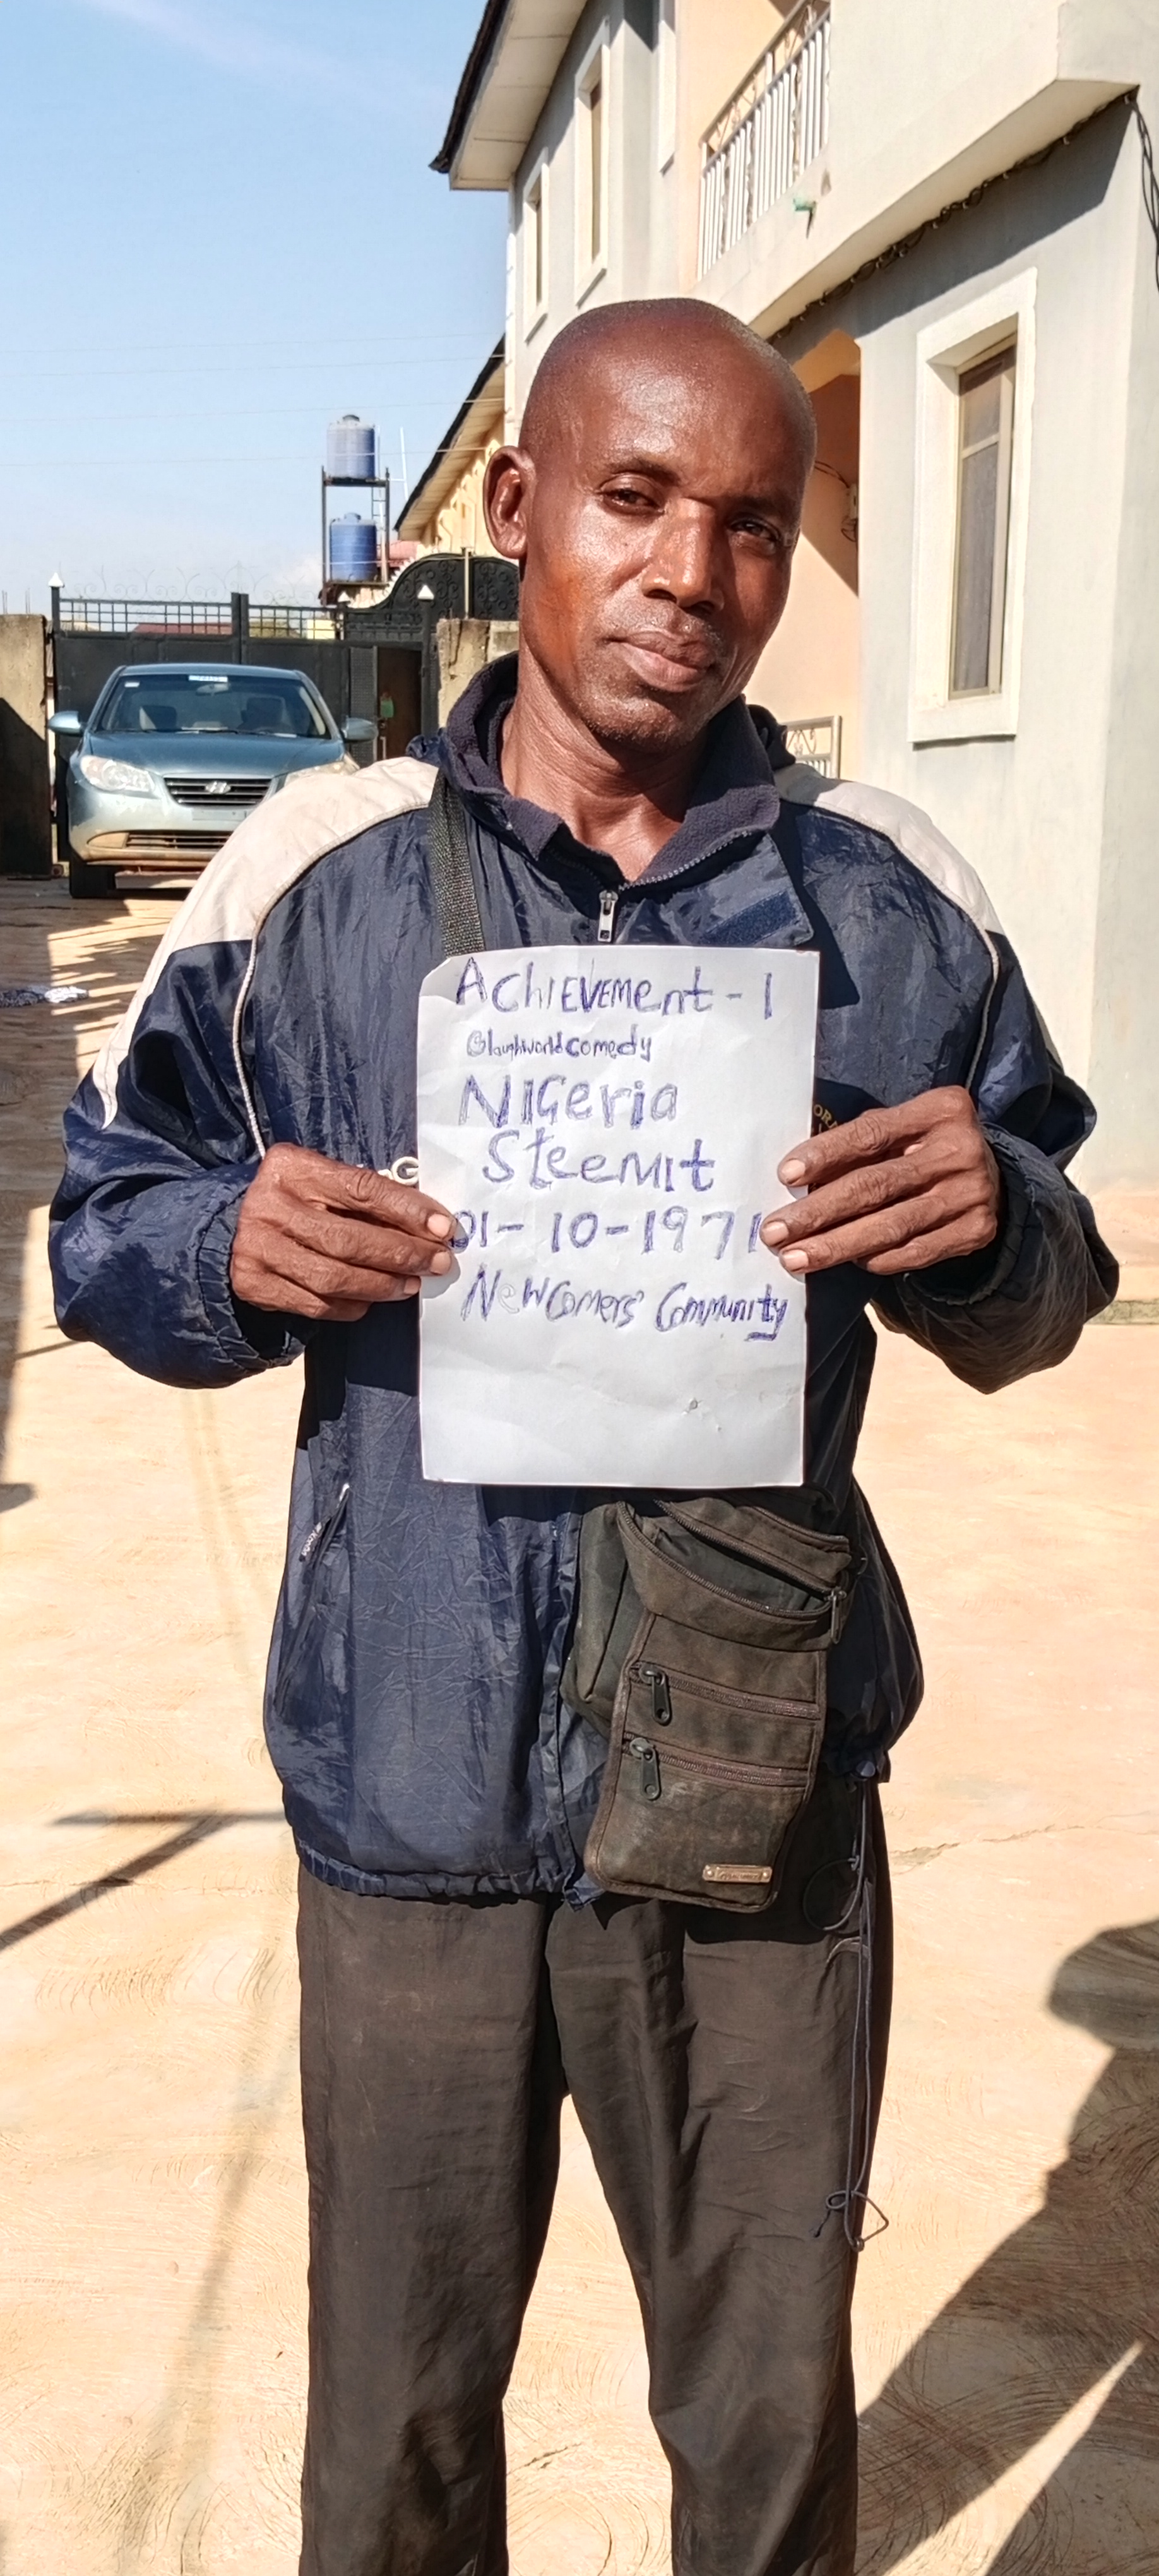 AChIEVEMent - 1
@laughworldcomedy
NIGeria
SteeMIt
01-10-1971
NewComers' Community